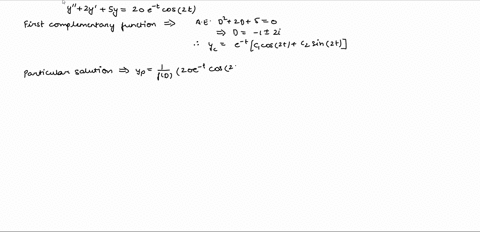 y'' + 2y' + 5y = 20 e^-t cos(2t)
First complementary function ⇒ A.E: D² + 2D + 5 = 0
⇒ D = -1 ± 2i
∴ y_c = e^-t [C₁ cos(2t) + C₂ sin(2t)]
Particular solution ⇒ y_p = 1/f(D) (20e^-t cos(2